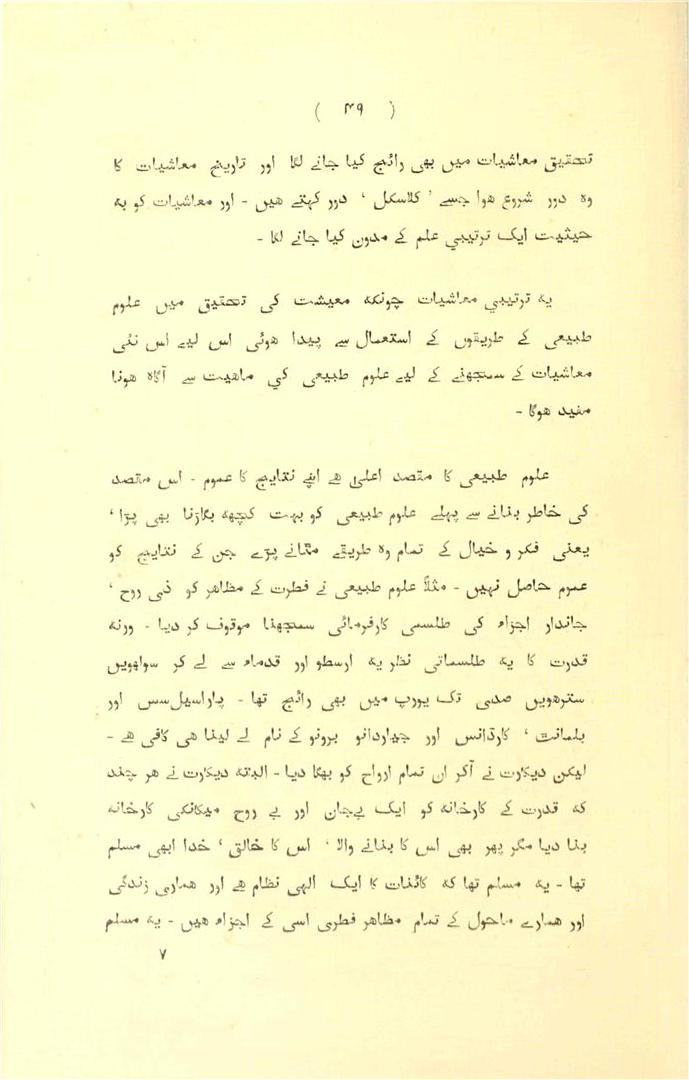 ( ۴۹ )
تحقیق معاشیات میں بھی رائج کیا جانے لگا اور تاریخ معاشیات کا
وہ دور شروع ہوا جسے ’ کلاسکل ‘ دور کہتے ہیں - اور معاشیات کو بہ
حیثیت ایک ترتیبی علم کے مدون کیا جانے لگا -
یہ ترتیبی معاشیات چونکہ معیشت کی تحقیق میں علوم
طبیعی کے طریقوں کے استعمال سے پیدا ہوئی اس لیے اس نئی
معاشیات کے سمجھنے کے لیے علوم طبیعی کی ماہیت سے آگاہ ہونا
مفید ہوگا -
علوم طبیعی کا مقصد اعلیٰ ہے اپنے نتایج کا عموم - اس مقصد
کی خاطر بنانے سے پہلے علوم طبیعی کو بہت کچھہ بگاڑنا بھی پڑا ‘
یعنی فکر و خیال کے تمام وہ طریقے مٹانے پڑے جن کے نتایج کو
عموم حاصل نہیں - مثلاً علوم طبیعی نے فطرت کے مظاہر کو ذی روح ‘
جاندار اجزاء کی طلسمی کارفرمائی سمجھنا موقوف کر دیا - ورنہ
قدرت کا یہ طلسماتی نظریہ ارسطو اور قدماء سے لے کر سولھویں
سترھویں صدی تک یورپ میں بھی رائج تھا - پاراسیل‌سس اور
ہلمانت ‘ کارڈانس اور جیاردانو برونو کے نام لے لینا ہی کافی ہے -
لیکن دیکارت نے آکر ان تمام ارواح کو بھگا دیا - البتہ دیکارت نے ہر چند
کہ قدرت کے کارخانہ کو ایک بےجان اور بے روح میکانکی کارخانہ
بنا دیا مگر پھر بھی اس کا بنانے والا ‘ اس کا خالق ‘ خدا ابھی مسلم
تھا - یہ مسلم تھا کہ کائنات کا ایک الٰہی نظام ہے اور ہماری زندگی
اور ہمارے ماحول کے تمام مظاہر فطری اسی کے اجزاء ہیں - یہ مسلم
۷